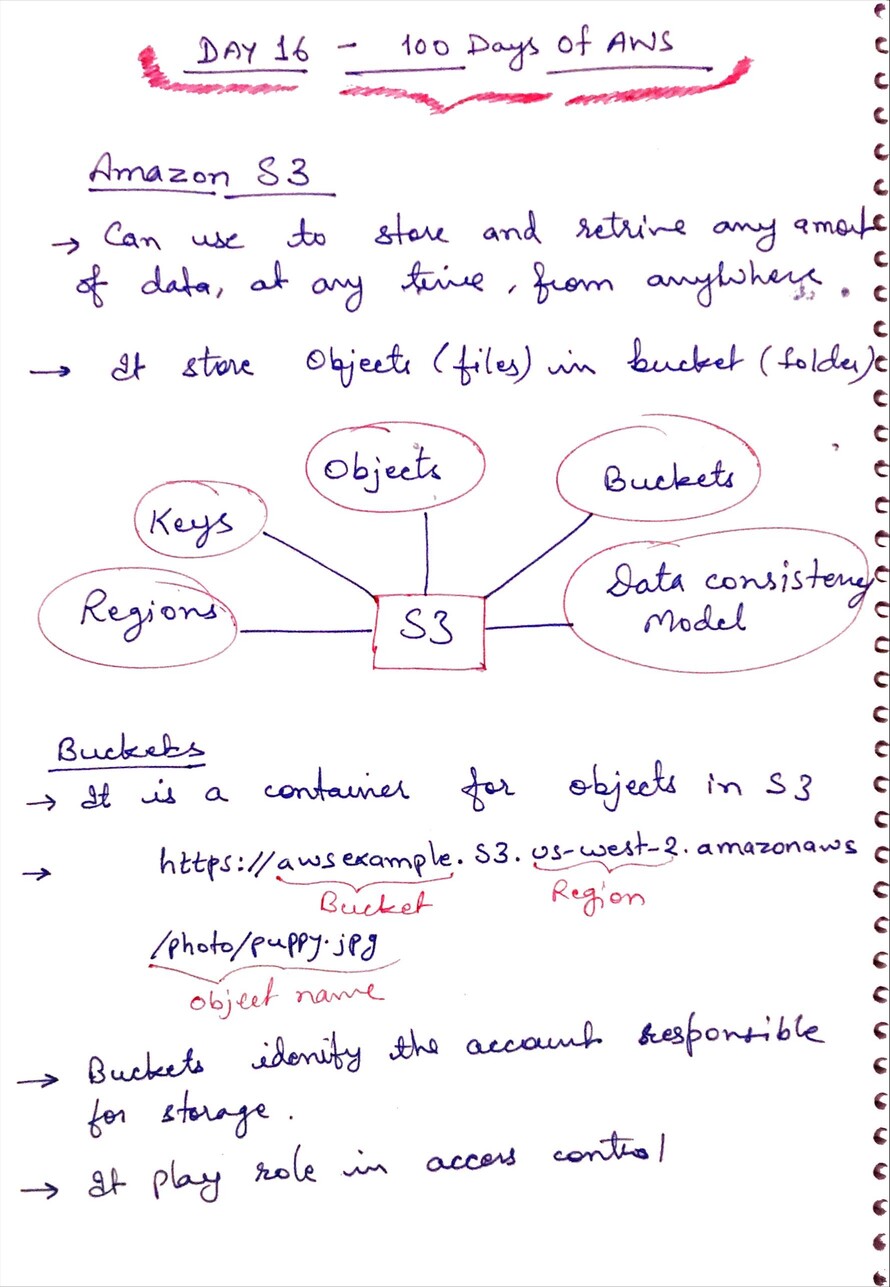 DAY 16 - 100 Days Of AWS
Amazon S3
→ Can use to store and retrive any amout
of data, at any time, from anywhere.
→ It store Objects (files) in bucket (folder)
Objects
Buckets
Keys
Data consisteny
Model
Regions
S3
Buckets
→ It is a container for objects in S3
→ https://awsexample.S3.us-west-2.amazonaws
Bucket
Region
/photo/puppy.jpg
object name
→ Buckets idenify the account responsible
for storage.
→ It play role in access control